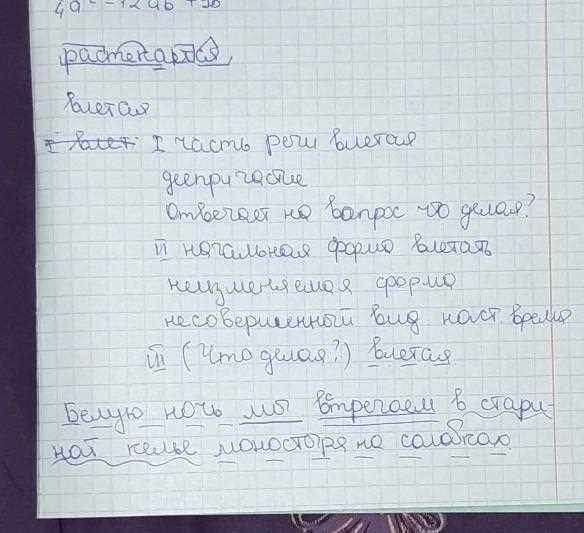 4a² - 12ab + 9b
растекаться
влетая
I влет. I часть речи влетая
деепричастие
Отвечает на вапрос что делая?
II начальная форма влетать
неизменяемая форма
несовершенный вид наст. время
III (Что делая?) влетая
Белую ночь мы встречаем в стари-
ной келье монастыря на